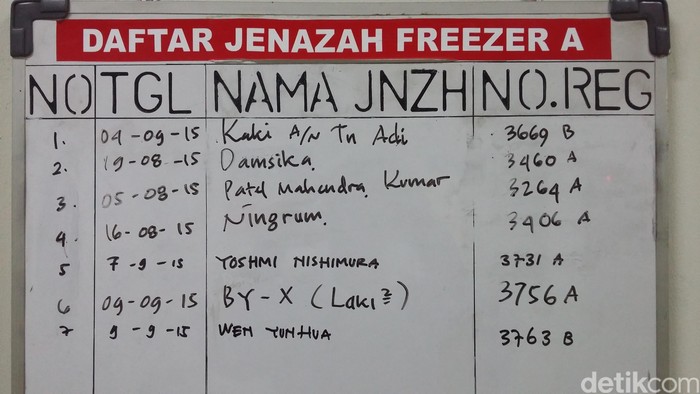 DAFTAR JENAZAH FREEZER A
NO TGL NAMA JNZH NO.REG
1. 04-09-15 Kaki A/N Tn Adi 3669 B
2. 19-08-15 Damsika 3460 A
3. 05-08-15 Patel Mahendra Kumar 3264 A
4. 16-08-15 Ningrum 3406 A
5 7-9-15 YOSHMI NISHIMURA 3731 A
6 09-09-15 BY-X (Laki²) 3756 A
7 9-9-15 WEN YUNHUA 3763 B
detikcom